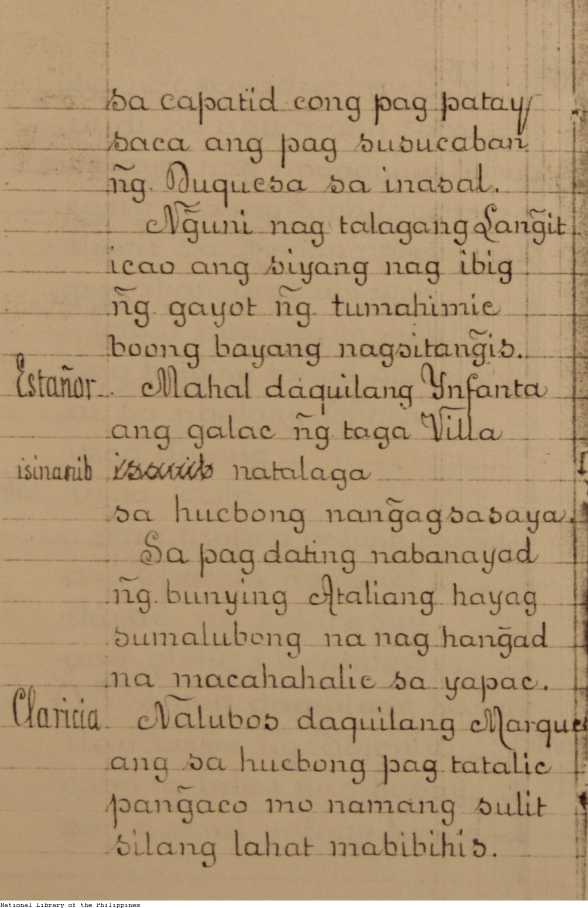 sa capatid cong pag patay
saca ang pag susucaban
n͠g. Duquesa sa inasal.
N͠guni nag talagang Lan͠git
icao ang siyang nag ibig
n͠g. gayot n͠g. tumahimic
boong bayang nagsitan͠gis.
Estañor. Mahal daquilang Ynfanta
ang galac n͠g taga Villa
isinanib natalaga
sa hucbong nan͠gagsasaya.
Sa pag dating nabanayad
n͠g. bunying Ataliang hayag
sumalubong na nag han͠gad
na macahahalic sa yapac.
Claricia. Nalubos daquilang Marques
ang sa hucbong pag tatalic
pan͠gaco mo namang sulit
silang lahat mabibihis.
National Library of the Philippines